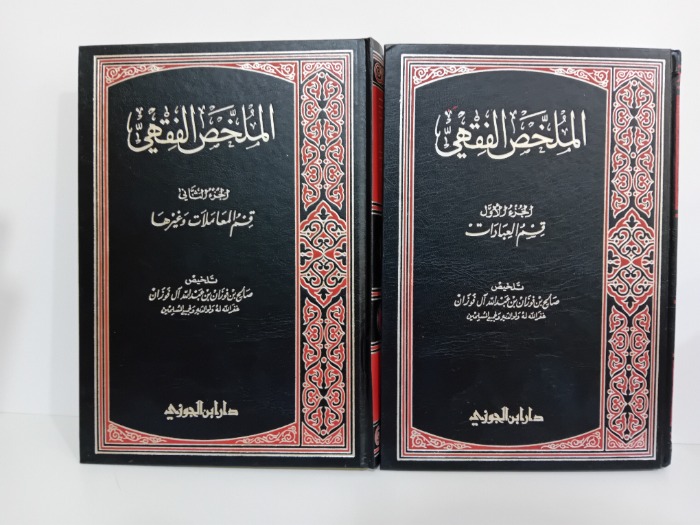 الملخص الفقهي
الجزء الأول
قسم العبادات
تلخيص
صالح بن فوزان بن عبد الله آل فوزان
غفر الله له ولوالديه ولجميع المسلمين
دار ابن الجوزي
الملخص الفقهي
الجزء الثاني
قسم المعاملات وغيرها
تلخيص
صالح بن فوزان بن عبد الله آل فوزان
غفر الله له ولوالديه ولجميع المسلمين
دار ابن الجوزي